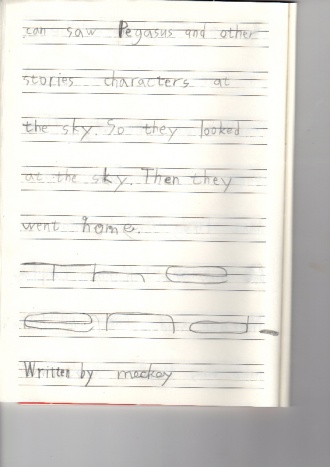 can saw Pegasus and other
stories characters at
the sky. So they looked
at the sky. Then they
went home.
THE
END
Written by mackay